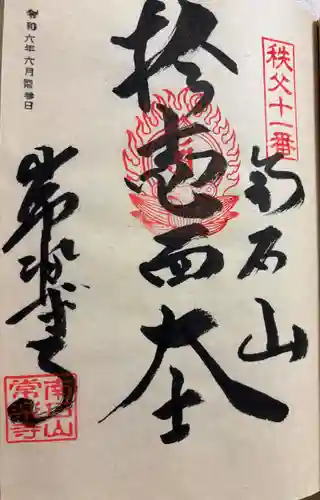 秩父十一番
南石山
拾壹面大士
令和六年六月
常楽寺
南石山
常楽寺